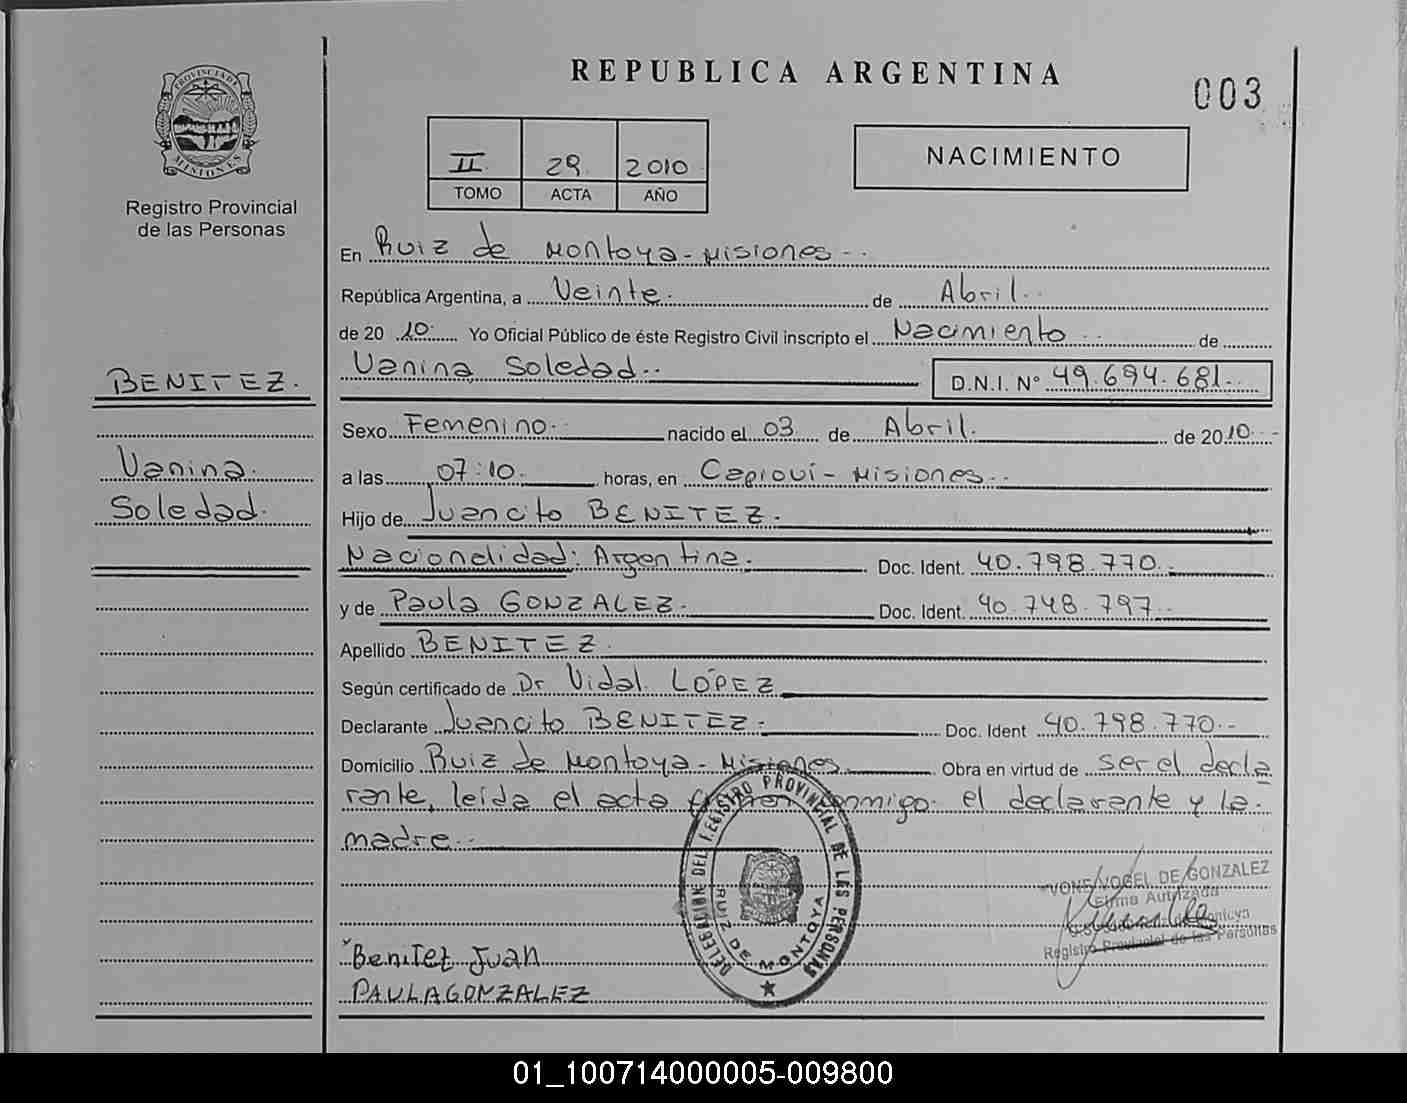 REPUBLICA ARGENTINA
003
PROVINCIA DE MISIONES
Registro Provincial
de las Personas
II 29 2010
TOMO ACTA AÑO
NACIMIENTO
En Ruiz de Montoya - Misiones
República Argentina, a Veinte de Abril
de 20 10 Yo Oficial Público de éste Registro Civil inscripto el Nacimiento de
Vanina Soledad D.N.I. Nº 49.694.681
BENITEZ
Vanina
Soledad
Sexo Femenino nacido el 03 de Abril de 2010
a las 07:10 horas, en Capioví - Misiones
Hijo de Juancito BENITEZ
Nacionalidad: Argentina. Doc. Ident. 40.798.770
y de Paula GONZALEZ Doc. Ident. 40.748.797
Apellido BENITEZ
Según certificado de Dr Vidal LÓPEZ
Declarante Juancito BENITEZ Doc. Ident 40.798.770
Domicilio Ruiz de Montoya - Misiones Obra en virtud de ser el decla
rante, leída el acta firman conmigo el declarante y la
madre
DELEGACION DEL REGISTRO PROVINCIAL DE LAS PERSONAS
RUIZ DE MONTOYA
YVONE VOGEL DE GONZALEZ
Firma Autorizada
Montoya
Registro Provincial de las Personas
Benitez Juan
PAULA GONZALEZ
01_100714000005-009800